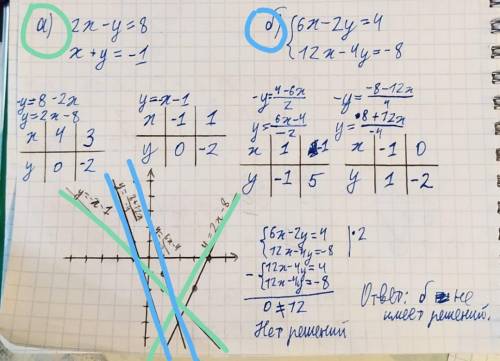 а) 2x-y=8
x+y=-1
б) {6x-2y=4
{12x-4y=-8
-y=8-2x
y=2x-8
x | 4 | 3
y | 0 | -2
y=-x-1
x | -1 | 1
y | 0 | -2
-y=(4-6x)/2
y=(6x-4)/-2
x | 1 | -1
y | -1 | 5
-y=(-8-12x)/4
y=(8+12x)/-4
x | -1 | 0
y | 1 | -2
y=-x-1
y=2x-8
{6x-2y=4 | ·2
{12x-4y=-8
- {12x-4y=4
{12x-4y=-8
0≠12
Нет решений
Ответ: б не
имеет решений.